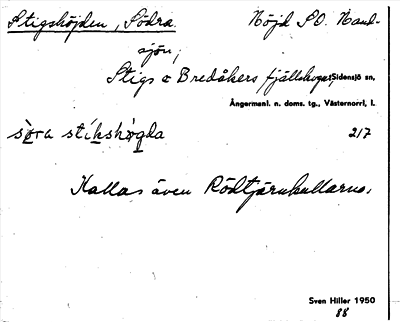 Stigshöjden, Södra. Höjd SO. Nand-
sjön,
Stigs o Bredåkers fjällskogar, Sidensjö sn,
Ångermanl. n. doms. tg., Västernorrl, l.
sö̀ra stíkshø̀gda 217
Kallas även Rödtjärnkullarna.
Sven Hiller 1950
88